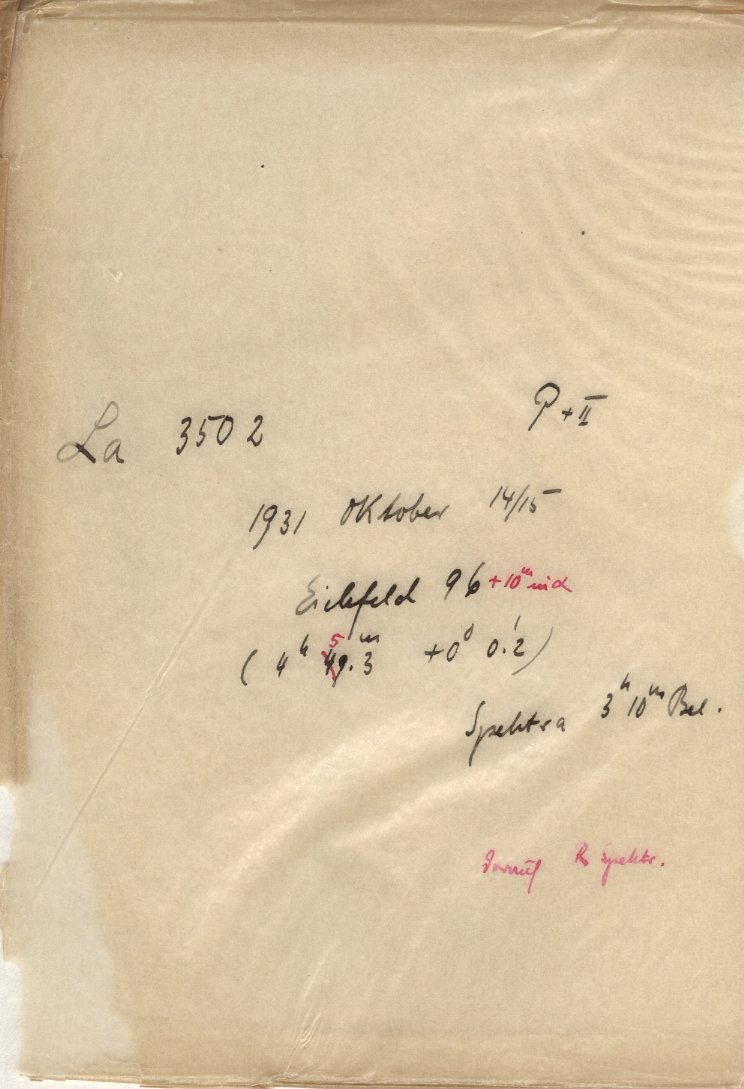 La 3502 P+II
1931 Oktober 14/15
Eichfeld 96 +10ᵐ in α
(4ʰ 59.3ᵐ +0° 0.'2)
Spektra 3ʰ10ᵐ Bel.
R Spektr.